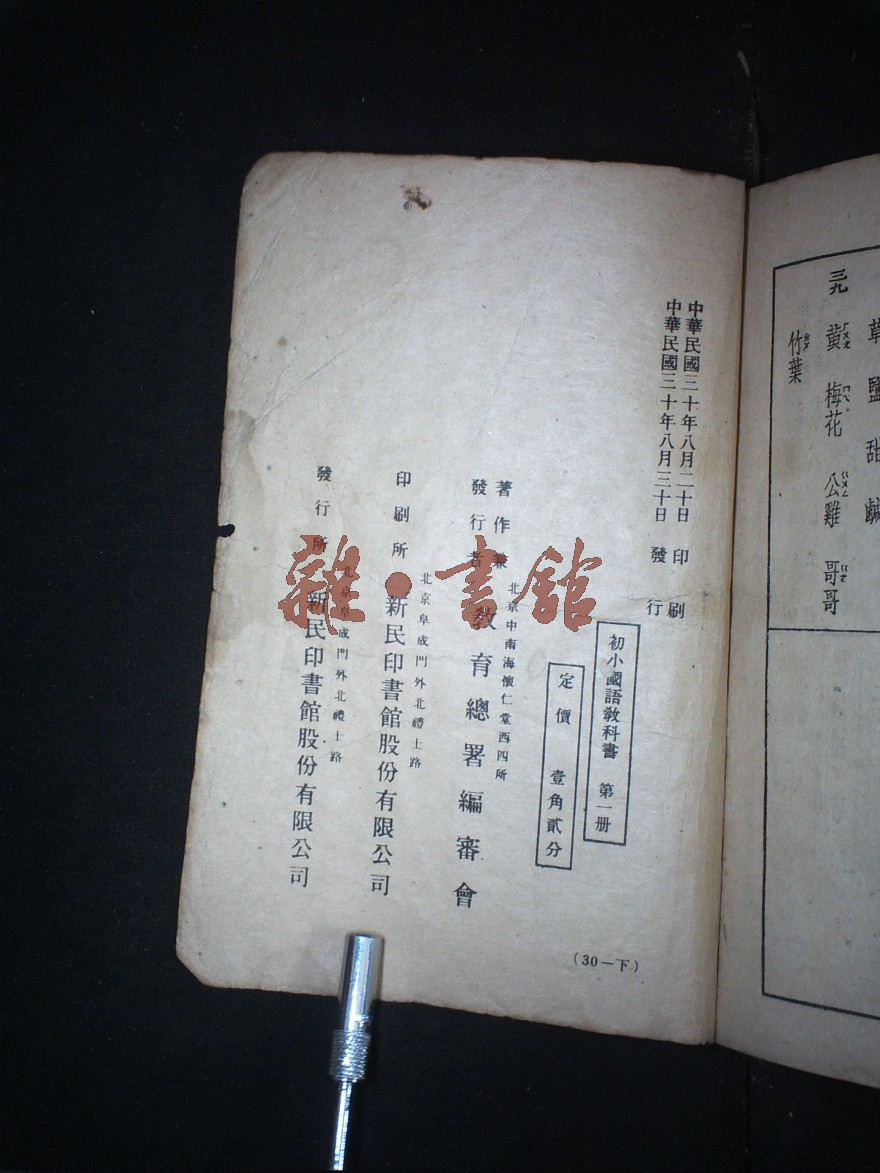 中華民國三十年八月二十日 印刷
中華民國三十年八月三十日 發行
初小國語教科書 第一册
定價 壹角貳分
著作兼
發行者
北京中南海懷仁堂西四所
教育總署編審會
印刷所
北京阜成門外北禮士路
新民印書館股份有限公司
發行所
北京阜成門外北禮士路
新民印書館股份有限公司
(30—下)
雜·書館
草 鹽 甜 鹹
三九 黃 梅花 公雞 哥哥
竹葉